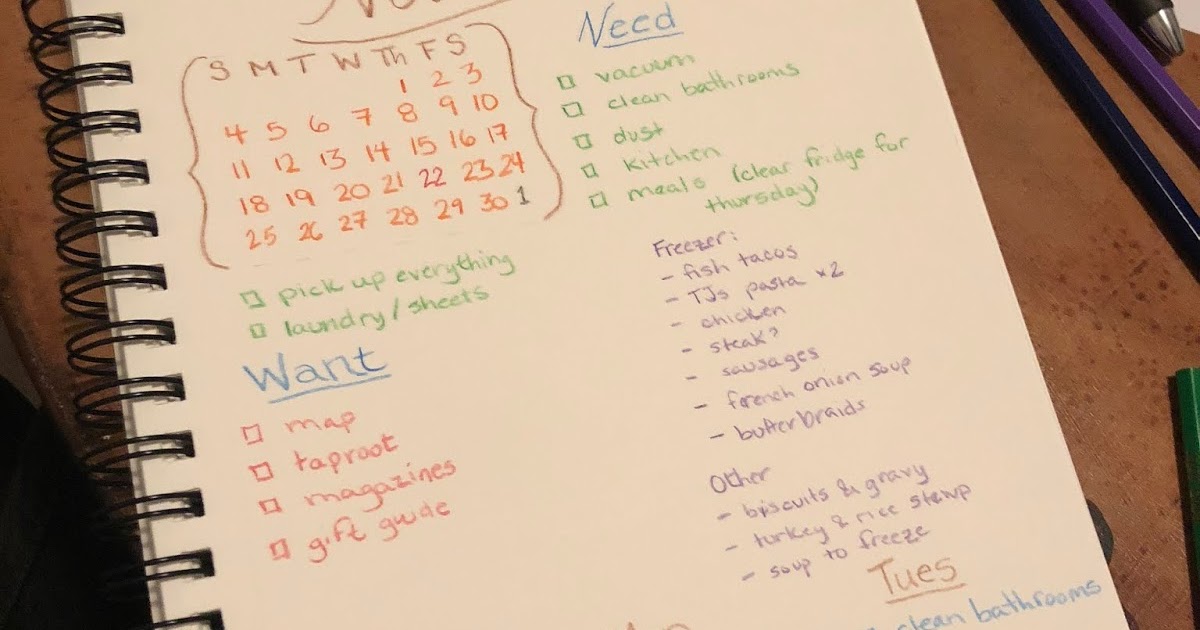 S M T W Th F S
1 2 3
4 5 6 7 8 9 10
11 12 13 14 15 16 17
18 19 20 21 22 23 24
25 26 27 28 29 30 1
pick up everything
laundry/sheets
Want
map
taproot
magazines
gift guide
Need
vacuum
clean bathrooms
dust
kitchen
meals (clear fridge for
thursday)
Freezer:
- fish tacos
- TJs pasta x2
- chicken
- steak?
- sausages
- french onion soup
- butter braids
Other
- biscuits & gravy
- turkey & rice
- soup to freeze
Tues
clean bathrooms